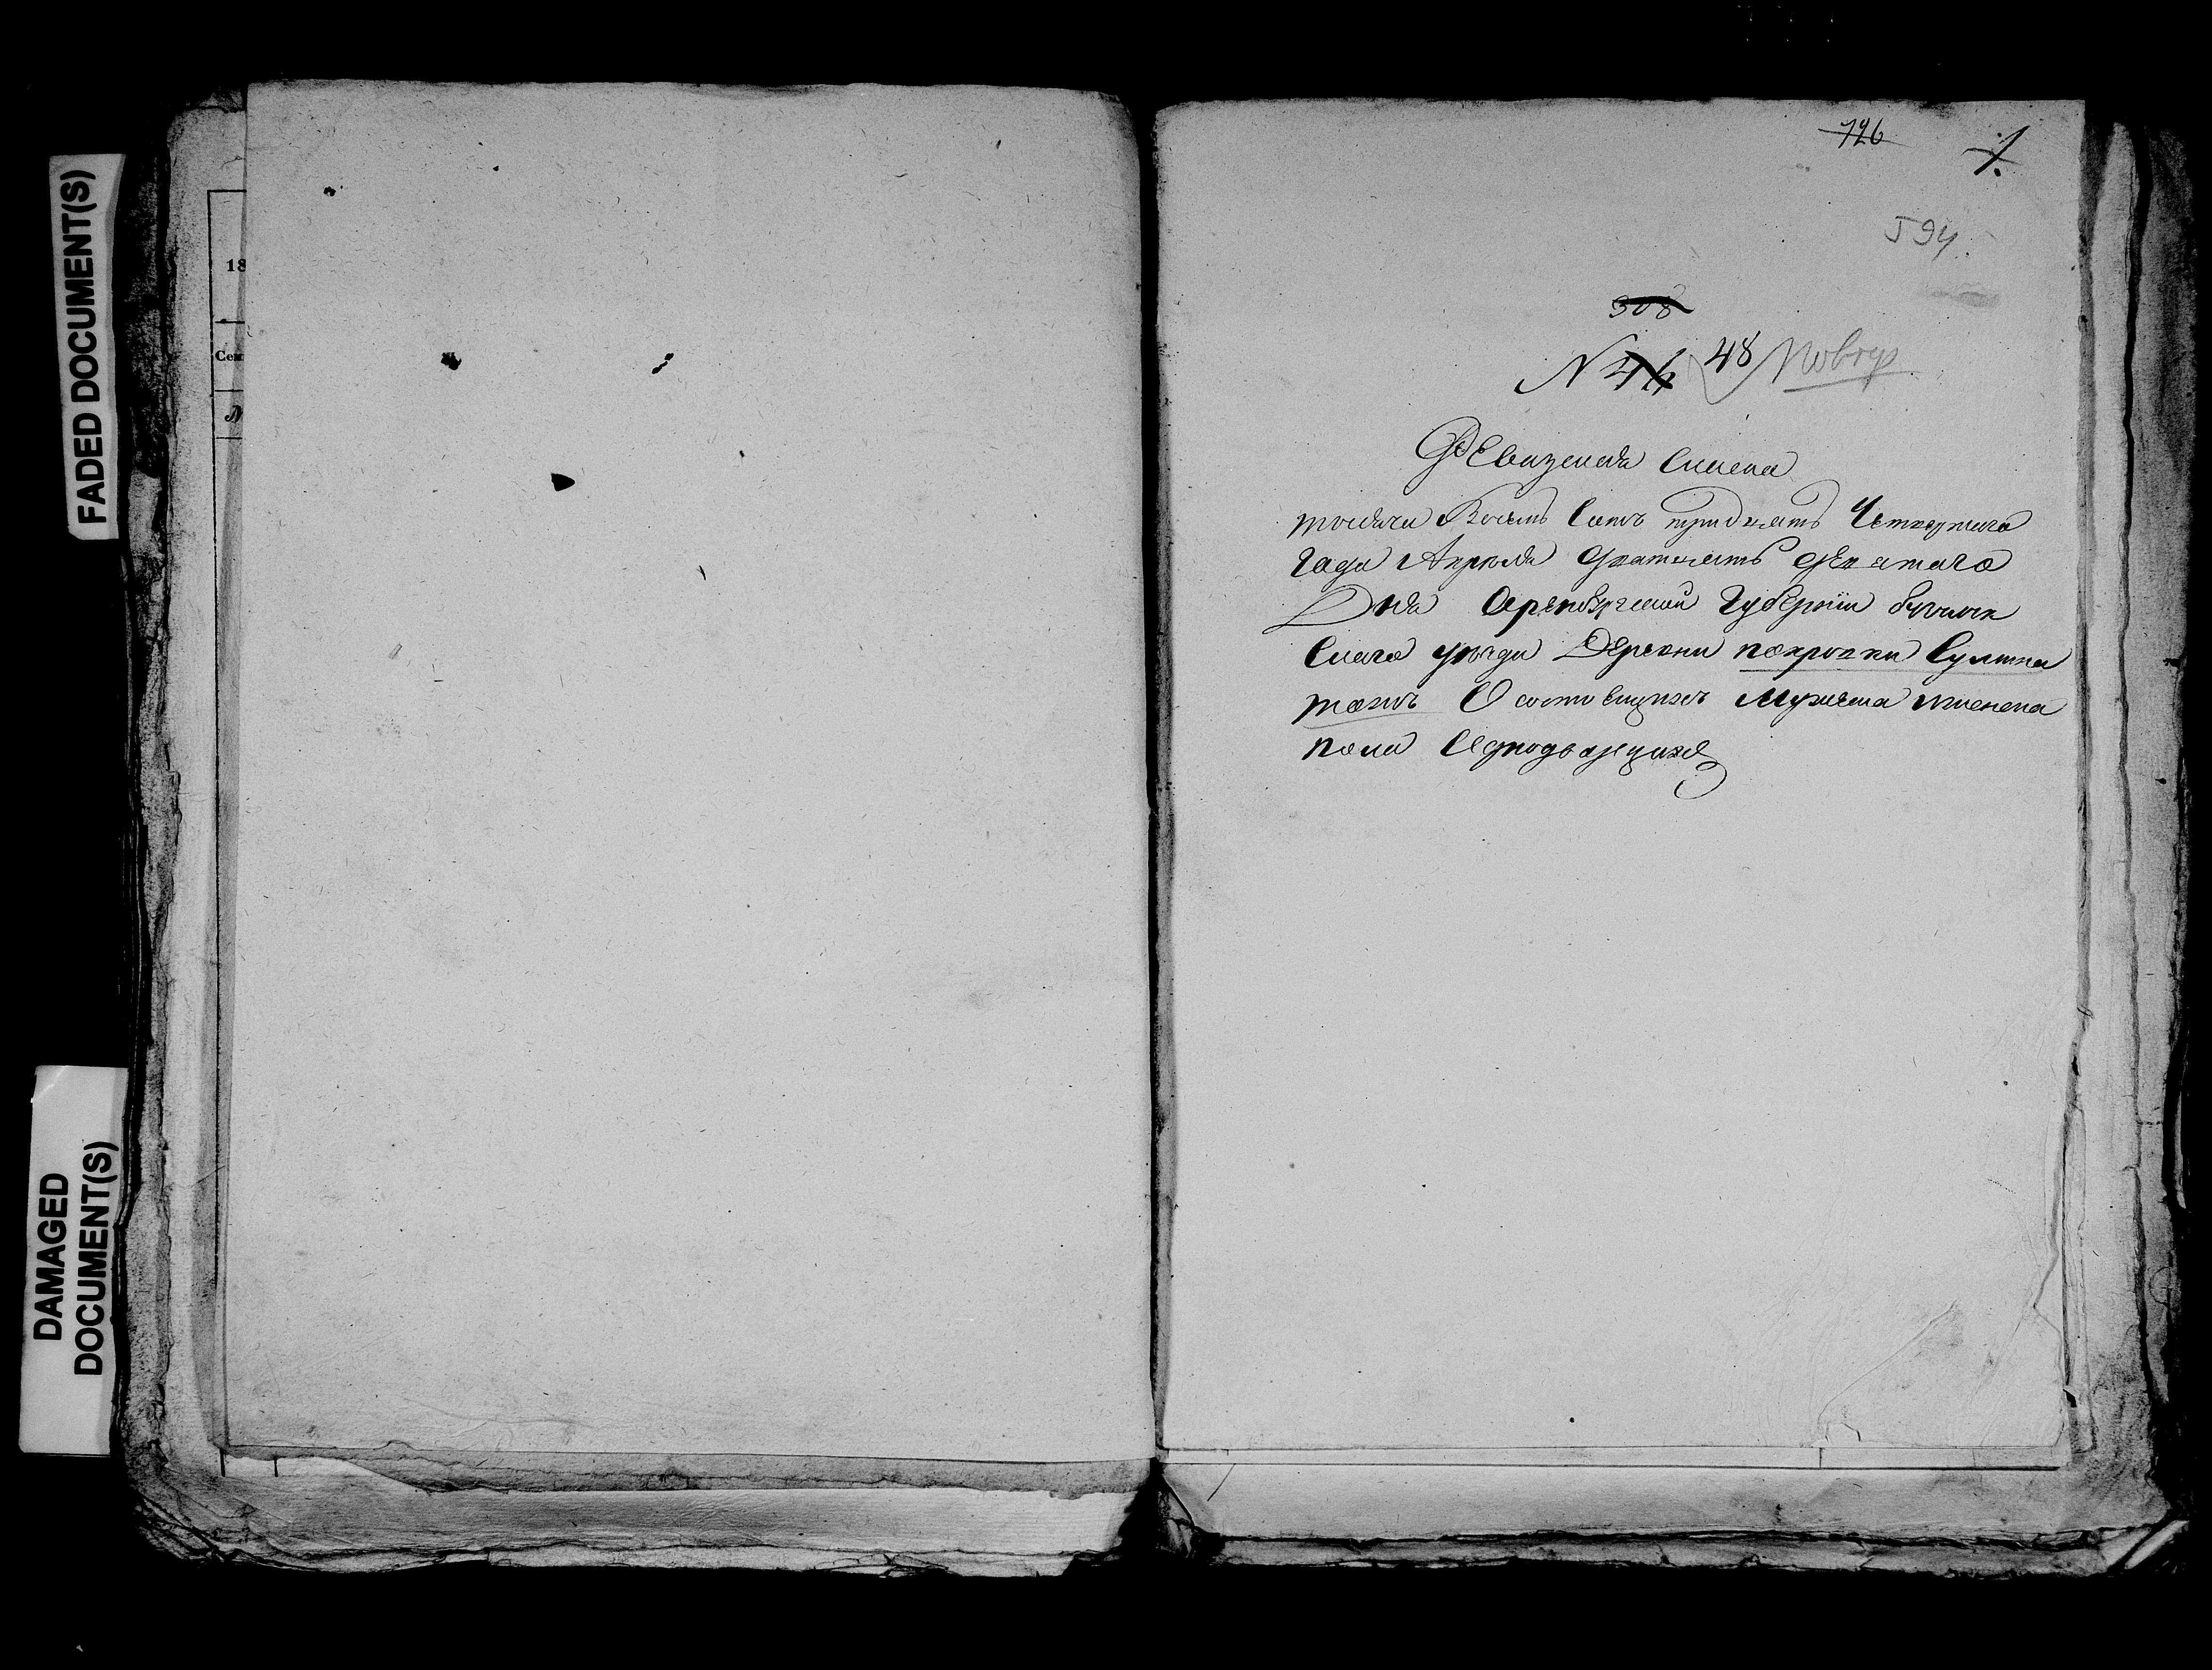 FADED DOCUMENT(S)
DAMAGED
DOCUMENT(S)
18
726
1.
594.
308
N 46 48
Ревизская Сказка
тысяча Восемь Сотъ тридцать Четвертаго
Года Апреля Дватцать девятаго
Дня Оренбургской Губернии бузулук
Скаго уезда Деревни покровки Султа
тожъ О состоящихъ мужеска женска
пола Однодворцахъ